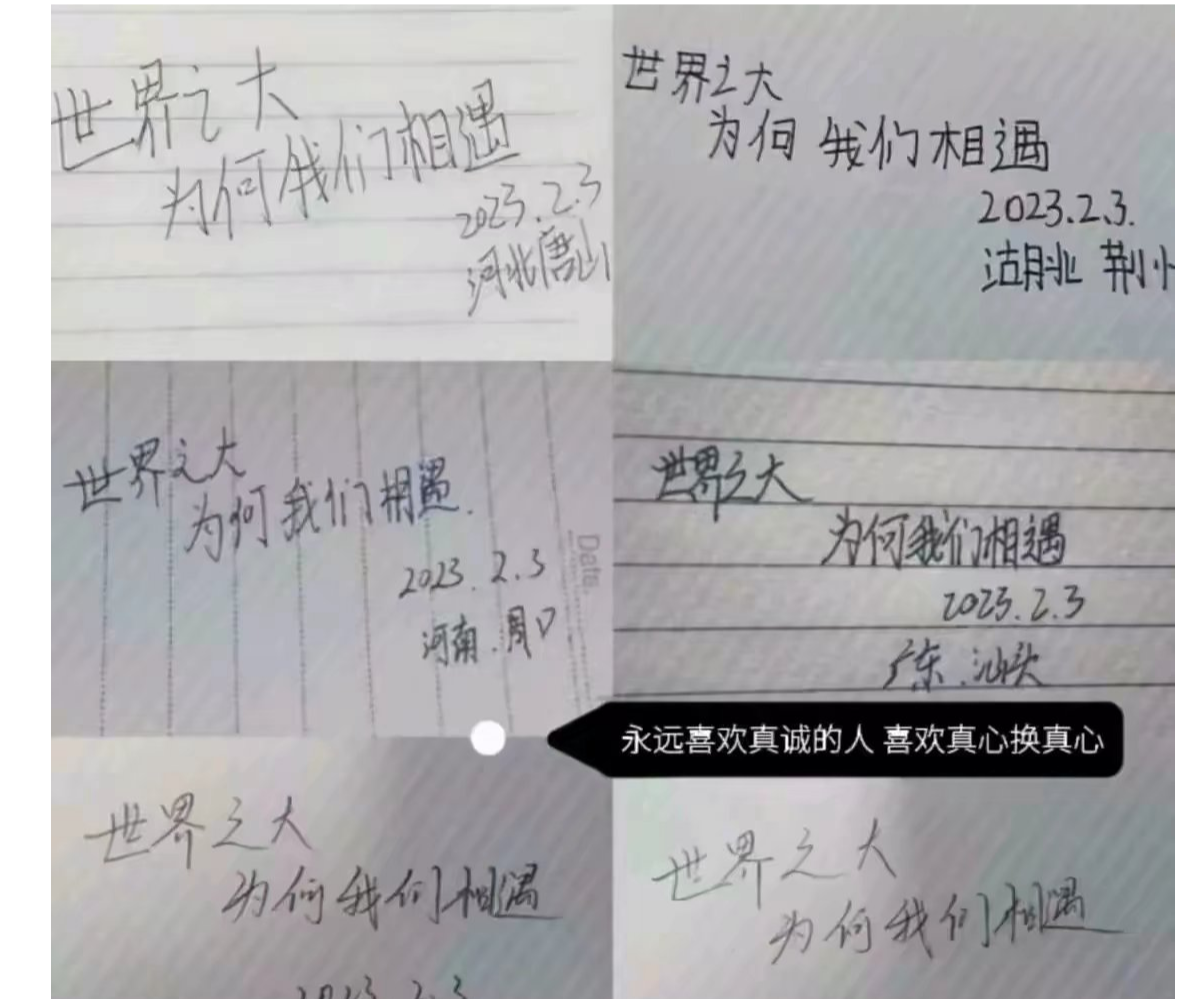 世界之大
为何我们相遇
2023.2.3
河北唐山
世界之大
为何我们相遇
2023.2.3.
湖北 荆州
世界之大
为何我们相遇.
2023.2.3
河南.周口
Date.
世界之大
为何我们相遇
2023.2.3
广东.汕头
永远喜欢真诚的人 喜欢真心换真心
世界之大
为何我们相遇
2023.2.3
世界之大
为何我们相遇